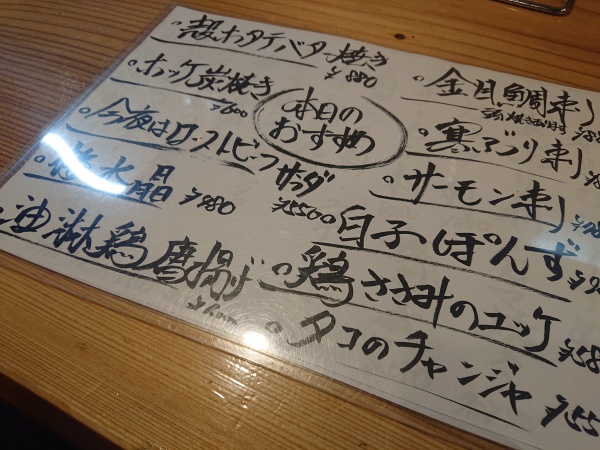 殻ホタテバター焼き
¥880
ホッケ炭焼き
¥600
今夜はローストビーフサラダ
¥550
水晶
¥980
油淋鶏唐揚げ
本日の
おすすめ
金目鯛刺
寒ぶり刺
サーモン刺
白子ぽんず
鶏ささみのユッケ
¥58
タコのチャンジャ
¥55